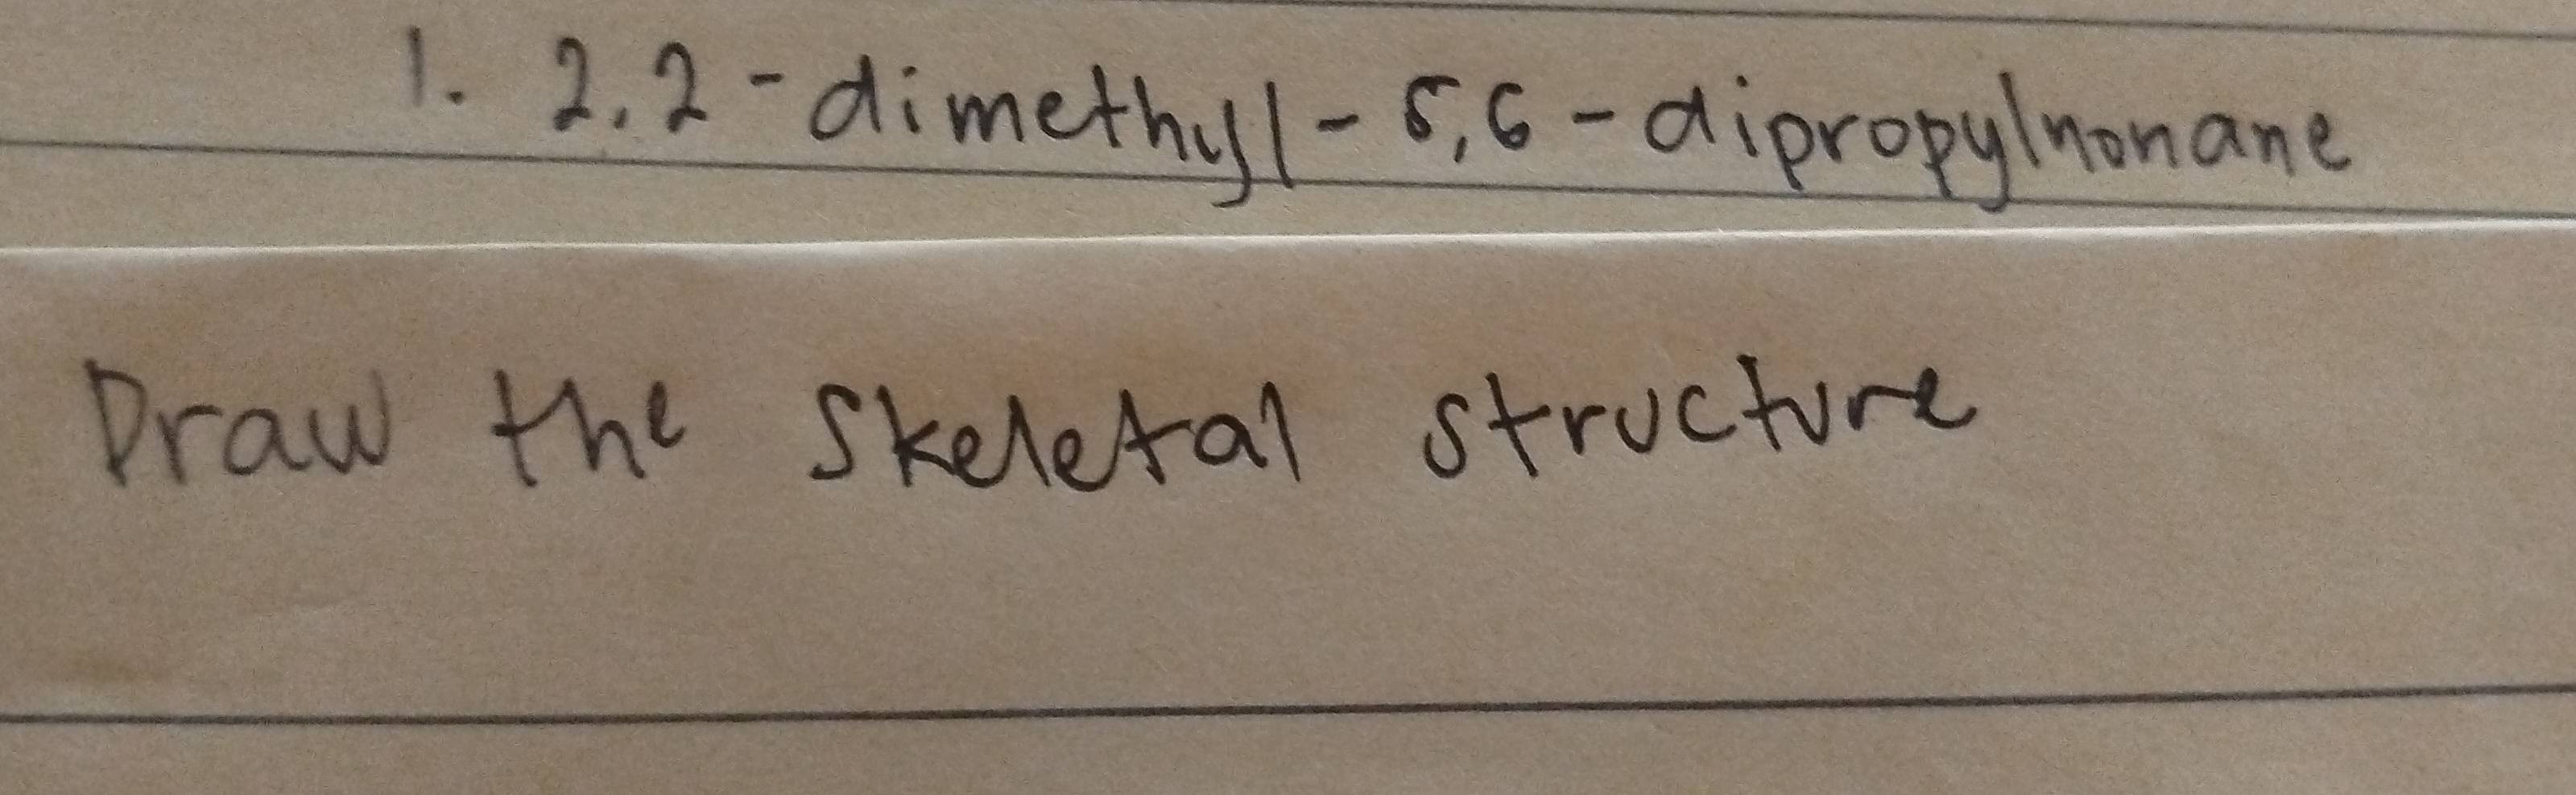 1. 2,2-dimethyl-5,6-dipropylnonane
Draw the skeletal structure